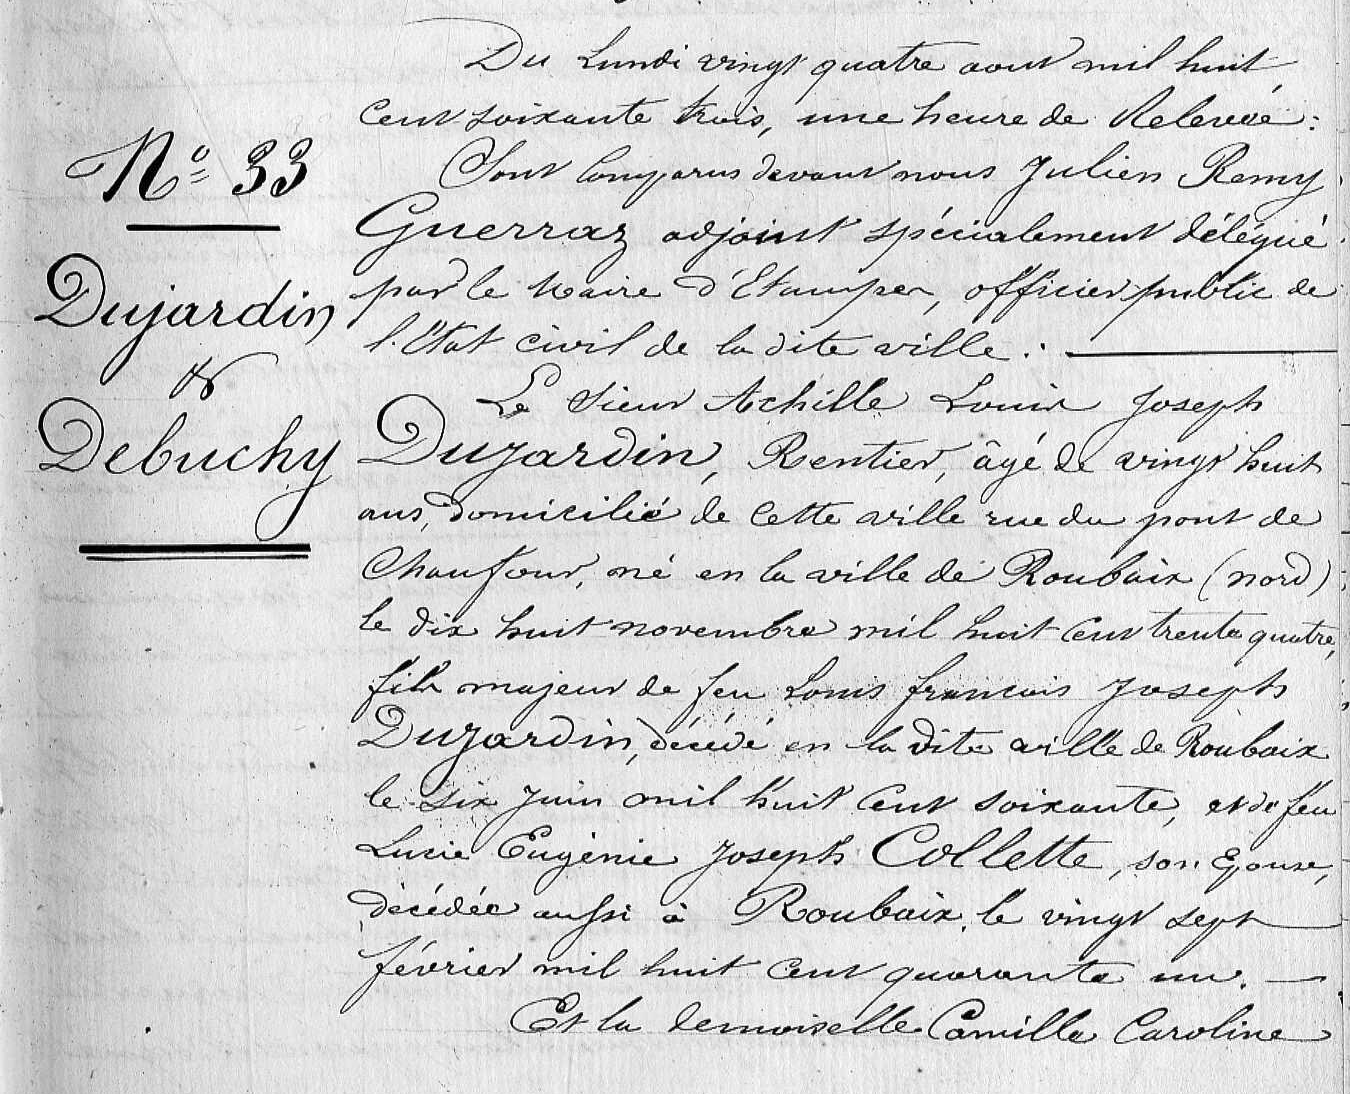 Nº 33
Dujardin
&
Debuchy
Du Lundi vingt quatre aout mil huit
cent soixante trois, une heure de Relevée :
Sont comparus devant nous Julien Remy
Guerraz adjoint spécialement délégué
par le Maire d'Etampes, officier public de
l'Etat civil de la dite ville :
Le Sieur Achille Louis Joseph
Dujardin, Rentier, âgé de vingt huit
ans, domicilié de cette ville rue du pont de
Chaufour, né en la ville de Roubaix (nord)
le dix huit novembre mil huit cent trente quatre,
fils majeur de feu Louis francois Joseph
Dujardin, décédé en la dite ville de Roubaix
le six Juin mil huit cent soixante, et de feu
Lucie Eugénie Joseph Collette, son Epouse,
décédée aussi à Roubaix, le vingt sept
février mil huit cent quarante un.
Et la demoiselle Camille Caroline